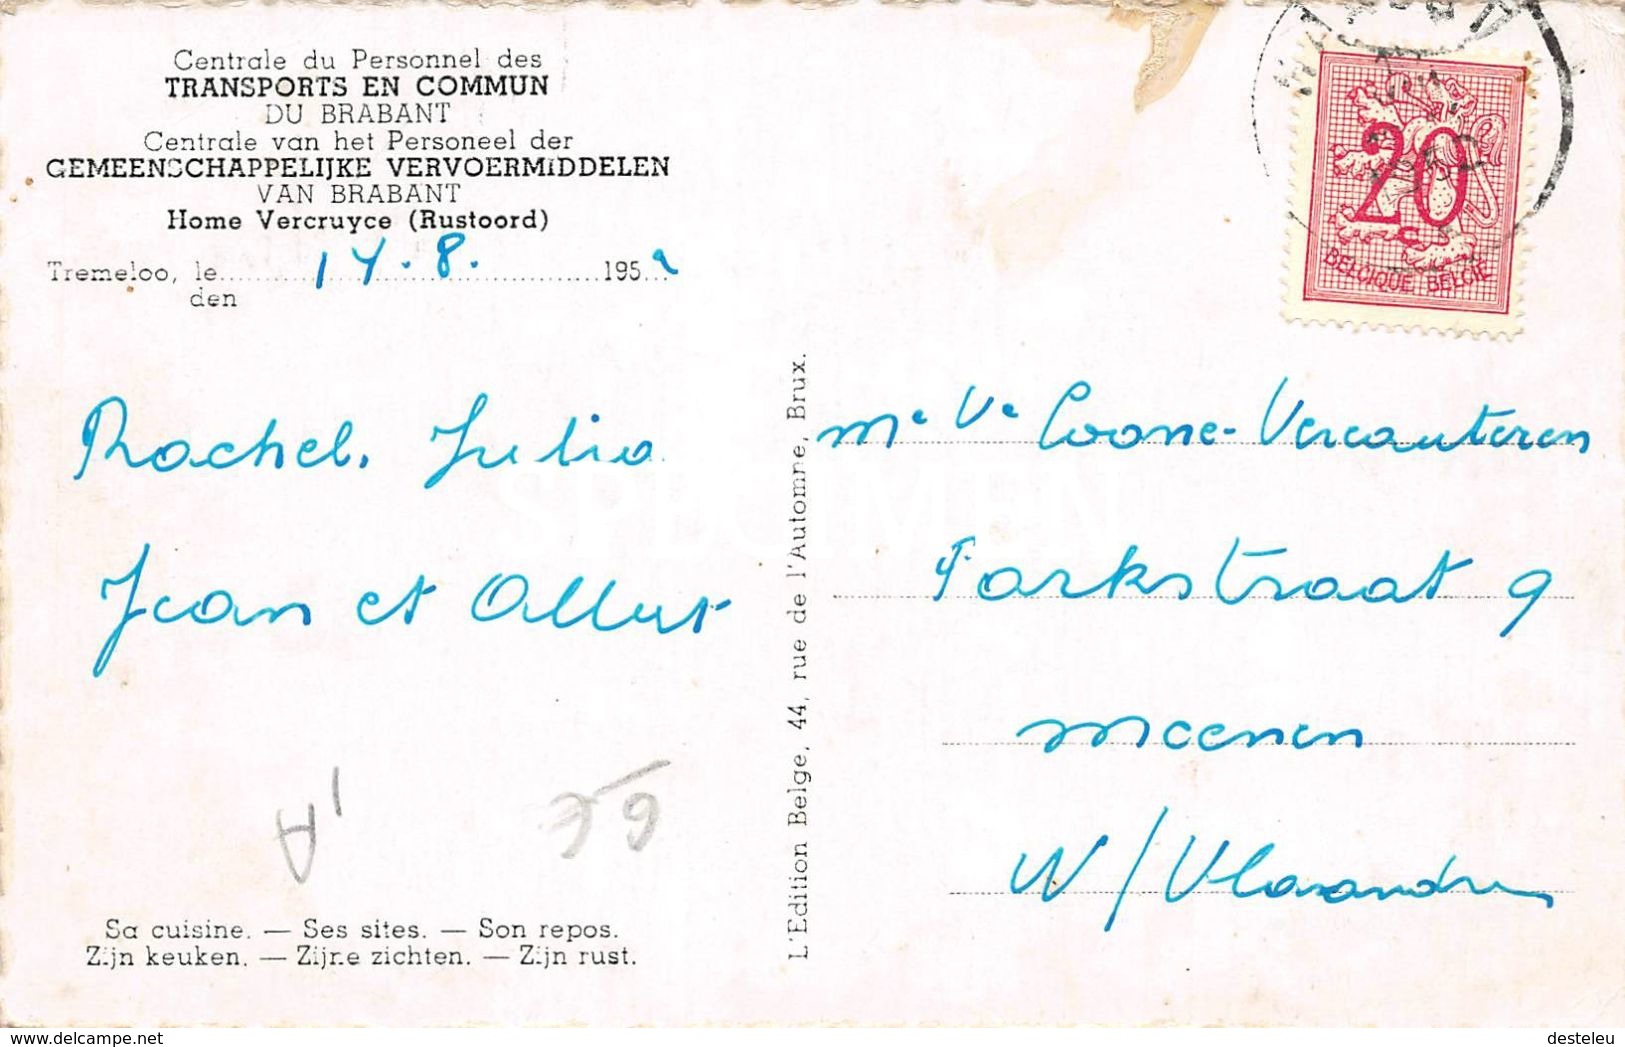 Centrale du Personnel des
TRANSPORTS EN COMMUN
DU BRABANT
Centrale van het Personeel der
GEMEENSCHAPPELIJKE VERVOERMIDDELEN
VAN BRABANT
Home Vercruyce (Rustoord)
Tremeloo, le 14.8. 195
den
Rachel, Julia
Jean et
Sa cuisine. — Ses sites. — Son repos.
Zijn keuken. — Zijne zichten. — Zijn rust.
L'Edition Belge, 44, rue de l'Automne, Brux.
20
BELGIQUE BELGIE
Me Ve Coone-Vercauteren
Parkstraat 9
Meenen
W/Vlaandren
SPECIMEN
www.delcampe.net
desteleu